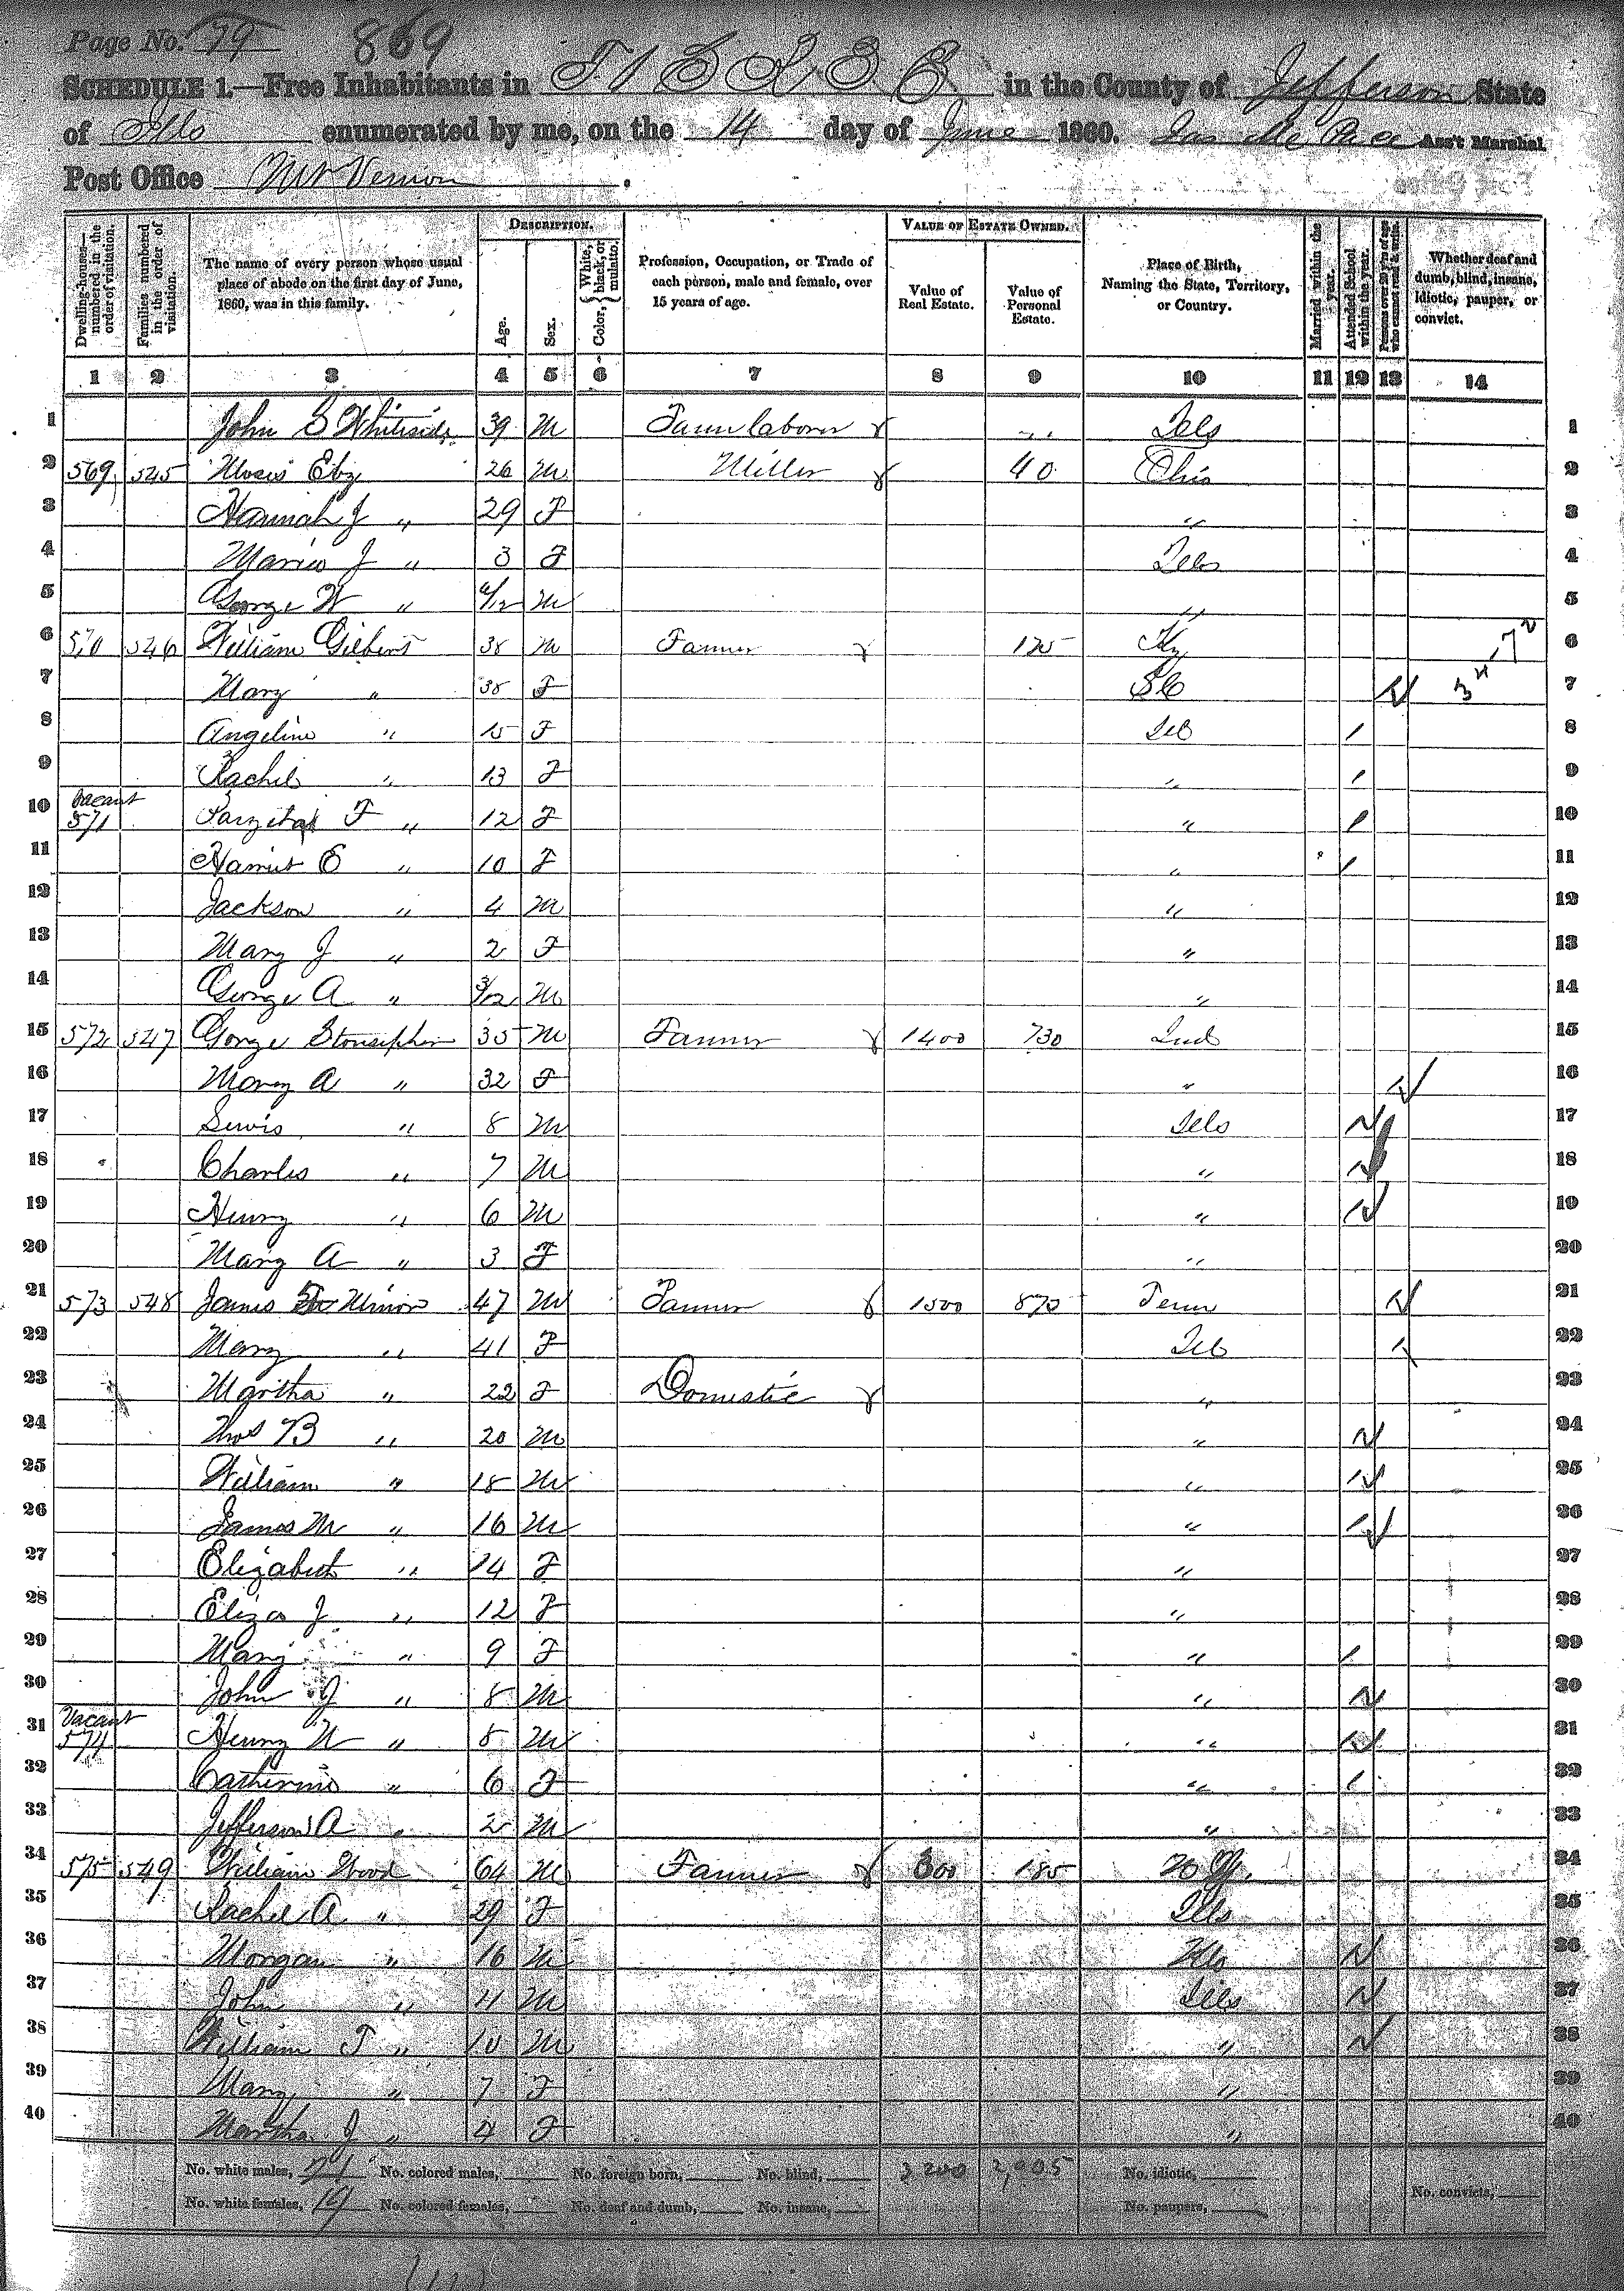 Page No. 79 869
SCHEDULE 1.—Free Inhabitants in T 1 S R 3 E in the County of Jefferson State
of Ills enumerated by me, on the 14 day of June 1860. Jas M Pace Ass't Marshal.
Post Office Mt Vernon
Dwelling-houses—numbered in the order of visitation.
Families numbered in the order of visitation.
The name of every person whose usual place of abode on the first day of June, 1860, was in this family.
DESCRIPTION.
Age.
Sex.
Color, { White, black, or mulatto.
Profession, Occupation, or Trade of each person, male and female, over 15 years of age.
VALUE OF ESTATE OWNED.
Value of Real Estate.
Value of Personal Estate.
Place of Birth, Naming the State, Territory, or Country.
Married within the year.
Attended School within the year.
Persons over 20 y'rs of age who cannot read & write.
Whether deaf and dumb, blind, insane, idiotic, pauper, or convict.
1 2 3 4 5 6 7 8 9 10 11 12 13 14
1 John S Whiteside 39 M Farm laborer Ills 1
2 569 545 Moses Eby 26 M Miller 40 Ohio 2
3 Hannah J " 29 F " 3
4 J " 3 F Ills 4
5 George W " /12 M " 5
6 570 546 William Gilbert 38 M Farmer 125 Ky 6
7 Mary " 38 F S C 7
8 Angeline " 15 F Ill 1 8
9 Rachel " 13 F " 1 9
10 Vacant 571 F " 12 F " 1 10
11 Harriet E " 10 F " 1 11
12 Jackson " 4 M " 12
13 Mary J " 2 F " 13
14 George A " 3/12 M " 14
15 572 547 George Stonsipher 35 M Farmer 1400 730 Ind 15
16 Mary A " 32 F " 16
17 Lewis " 8 M Ills 17
18 Charles " 7 M " 18
19 Henry " 6 M " 19
20 Mary A " 3 F " 20
21 573 548 James Minor 47 M Farmer 1500 870 Tenn 21
22 Mary " 41 F Ill 22
23 Martha " 22 F Domestic " 23
24 Thos B " 20 M " 24
25 William " 18 M " 25
26 James M " 16 M " 26
27 Elizabeth " 14 F " 27
28 Eliza J " 12 F " 28
29 Mary " 9 F " 1 29
30 John J " 8 M " 30
31 Vacant 574 Henry " 8 M " 31
32 Catherine " 6 F " 1 32
33 Jefferson A " 2 M " 33
34 575 549 William Wood 64 M Farmer 300 185 34
35 Rachel A " 29 F Ills 35
36 Morgan " 16 M 36
37 John " 11 M Ills 37
38 William T " 10 M " 38
39 Mary " 7 F " 39
40 Martha J " 4 F " 40
No. white males, 21 No. colored males, No. foreign born, No. blind, 3200 2,905 No. idiotic,
No. white females, 19 No. colored females, No. deaf and dumb, No. insane, No. paupers, No. convicts,